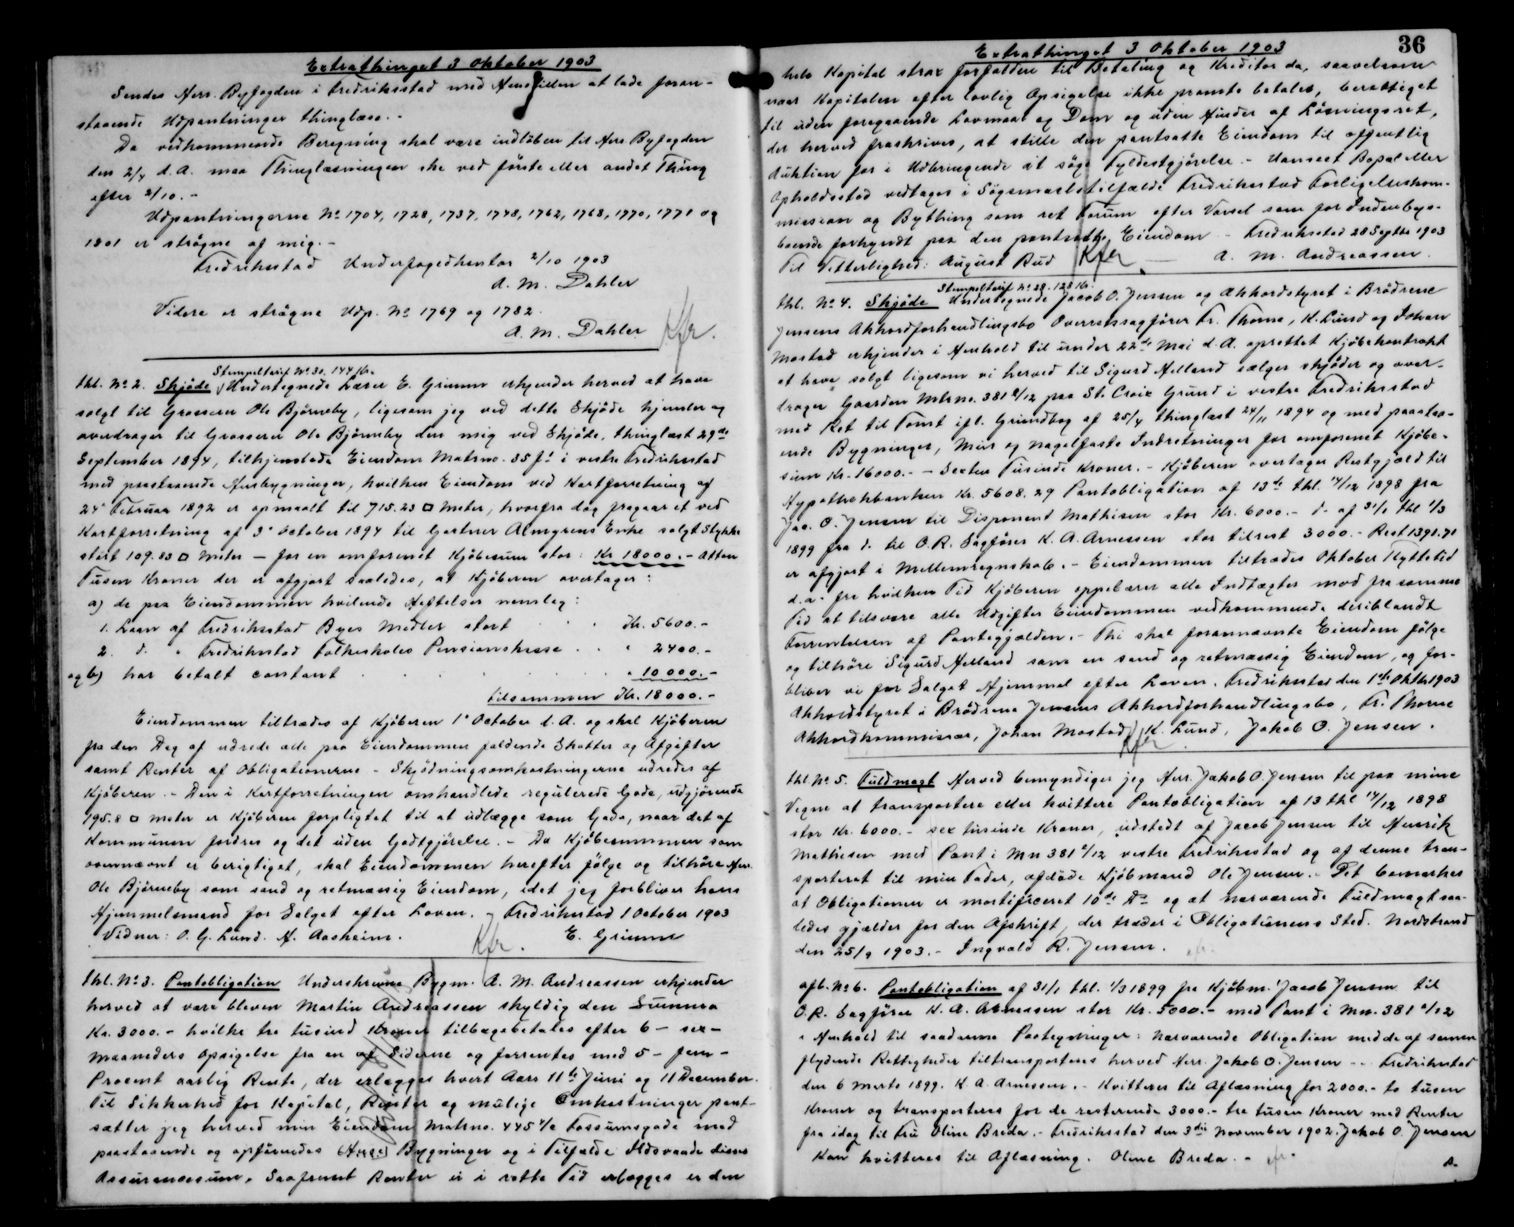 Extrathinget 3 Oktober 1903
Sendes Herr Byfogden i Fredriksstad med Henstillen at lade foran-
staaende Udpantninger thinglæse. -
Da vedkommende Beregning skal være indløben til Herr Byfogden
den 2/4 d.A. maa Thinglæsningen ske ved første eller andet Thing
efter 2/10. -
Udpantningerne No 1704, 1728, 1737, 1748, 1762, 1768, 1770, 1771 og
1801 er strøgne af mig. -
Fredriksstad Underfogedkontor 2/10 1903
A. M. Dahler
Videre er strøgne Udp. No 1769 og 1782.
A. M. Dahler Kfr.
Stempeltarif No 30. 144/6.
thl. No 2. Skjøde Undertegnede Lærer E. Grimm erkjender herved at have
solgt til Grosserer Ole Bjørneby, ligesom jeg ved dette Skjøde hjemler og
overdrager til Grosserer Ole Bjørneby den mig ved Skjøde, thinglæst 29de
September 1894, tilhjemlede Eiendom Matrno. 35 i vestre Fredriksstad
med paastaaende Husbygninger, hvilken Eiendom ved Kartforretning af
24' Februar 1892 er opmaalt til 715.23 □ Meter, hvorfra dog fragaar et ved
Kartforretning af 3' October 1894 til Gartner Almgrens Enke solgt Stykke
stort 109.83 □ Meter - for en omforenet Kjøbesum stor: Kr 18000.- Atten
Tusen Kroner der er afgjort saaledes, at Kjøberen overtager:
a) de paa Eiendommen hvilende Heftelser nemlig:
1. Laan af Fredriksstad Byes Midler stort . . Kr. 5600.-
2. d. " Fredriksstad Folkeskoles Pensionskasse . . " 2400.-
og b) har betalt contant . . . . . " 10000.-
tilsammen Kr. 18000.-
Eiendommen tiltrædes af Kjøberen 1' October d.A. og skal Kjøberen
fra den Dag af udrede alle paa Eiendommen faldende Skatter og Afgifter
samt Renter af Obligationerne - Skjødningsomkostningerne udredes af
Kjøberen. - Den i Kartforretningen omhandlede regulerede Gade, udgjørende
195.8 □ Meter er Kjøberen forpligtet til at udlægge som Gade, naar det af
Kommunen fordres og det uden Godtgjørelse. - Da Kjøbesummen som
ovennævnt er berigtiget, skal Eiendommen herefter følge og tilhøre Herr
Ole Bjørneby som sand og retmæssig Eiendom, idet jeg forbliver hans
Hjemmelsmand for Salget efter Loven. - Fredriksstad 1 October 1903
Vidner: O. G. Lund. H. Aasheim. Kfr. E. Grimm
thl. No 3. Pantobligation Underskrevne Bygm. A. M. Andreassen erkjender
herved at være bleven Martin Andreassen skyldig den Summa
Kr. 3000.- hvilke tre tusind Kroner tilbagebetales efter 6 - sex -
Maaneders Opsigelse fra en af Siderne og forrentes med 5 - fem -
Procent aarlig Rente, der erlægges hvert Aars 11te Juni og 11 December.
Til Sikkerhed for Kapital, Renter og mulige Omkostninger pant-
sætter jeg herved min Eiendom Matrno. 445 Fossumsgade med
paastaaende og opførendes Bygninger og i Tilfælde Ildsvaade disses
Assurancesum. Saafremt Renter ei i rette Tid erlægges er den
36
Extrathinget 3 Oktober 1903
hele Kapital strax forfalden til Betaling og Kreditor da, saavelsom
naar Kapitalen efter lovlig Opsigelse ikke promte betales, berettiget
til uden foregaaende Lovmaal og Dom og uden Hinder af Løsningsret,
der herved fraskrives, at stille den pantsatte Eiendom til offentlig
Auktion for i Udbringende at søge Fyldestgjørelse. - Uanseet Bopæl eller
Opholdssted vedtages i Søgsmaalstilfælde Fredriksstad Forligelseskom-
mission og Bything som ret Forum efter Varsel som for Indenbys-
boende forkyndt paa den pantsatte Eiendom - Fredriksstad 28 Septbr 1903
Til Vitterlighed: August Rud Kfr. - A. M. Andreassen.
Stempeltarif No 39. 128 16.
thl. No 4. Skjøde Undertegnede Jacob O. Jensen og Akkordstyret i Brødrene
Jensens Akkordforhandlingsbo Overretssagfører Fr. Thorne, K. Lund og Johan
Mostad erkjender i Henhold til under 22de Mai d.A. oprettet Kjøbekontrakt
at have solgt ligesom vi herved til Sigurd Helland sælger skjøder og over-
drager Gaarden Mtrno. 381 a/12 paa St. Croix Grund i vestre Fredriksstad
med Ret til Tomt ifl. Grundbog af 25/4 thinglæst 24/11 1894 og med paastaa-
ende Bygninger, Mur og nagelfaste Indretninger for omforenet Kjøbe-
sum Kr. 16000.- - Sexten Tusinde Kroner. - Kjøberen overtager Restgjæld til
Hypothekbanken Kr. 5608.29 Pantobligation af 13de thl. 14/12 1898 fra
Jac. O. Jensen til Disponent Mathisen stor Kr. 6000.- d. af 31/1 thl 1/3
1899 fra d. til O.R. Sagfører K. A. Arnessen stor tilrest 3000.- Rest 1391.71
er afgjort i Mellemregnskab. - Eiendommen tiltrædes Oktober Flyttetid
d.a. fra hvilken Tid Kjøberen oppebærer alle Indtægter mod fra samme
Tid at tilsvare alle Udgifter Eiendommen vedkommende deriblandt
Forrentelsen af Pantegjælden. - Thi skal forannævnte Eiendom følge
og tilhøre Sigurd Helland som en sand og retmæssig Eiendom, og for-
bliver vi for Salget Hjemmel efter Loven. Fredriksstad den 1ste Oktbr 1903
Akkordstyret i Brødrene Jensens Akkordforhandlingsbo, Fr. Thorne
Akkordkommissær, Johan Mostad, K. Lund, Jakob O. Jensen.
Kfr
thl. No 5. Fuldmagt Herved bemyndiger jeg Herr Jakob O. Jensen til paa mine
Vegne at transportere eller kvittere Pantobligation af 13 thl 14/12 1898
stor Kr. 6000.- sex tusinde Kroner, udstedt af Jacob Jensen til Henrik
Mathisen med Pant i Mn 381 a/12 vestre Fredriksstad og af denne tran-
sporteret til min Fader, afdøde Kjøbmand Ole Jensen. - Det bemærkes
at Obligationen er mortificeret 10de ds og at nærværende Fuldmagt saa-
ledes gjælder for den Afskrift, der træder i Obligationens Sted. Nordstrand
den 25/9 1903. - Ingvald R. Jensen.
afl. No 6. Pantobligation af 31/1 thl. 1/3 1899 fra Kjøbm. Jacob Jensen til
O.R. Sagfører K. A. Arnessen stor Kr. 5000.- med Pant i Mn. 381 a/12
i Henhold til saadanne Paategninger: Nærværende Obligation med de af samme
flydende Rettigheder tiltransporteres herved Herr Jakob O. Jensen - - Fredriksstad
den 6 Marts 1899. K. A. Arnessen. - Kvitteres til Aflæsning for 2000.- to tusen
Kroner og transporteres for de resterende 3000.- tre tusen Kroner med Renter
fra idag til Fru Oline Breda. - Fredriksstad den 3die November 1902. Jakob O. Jensen
Kan kvitteres til Aflæsning. Oline Breda. -